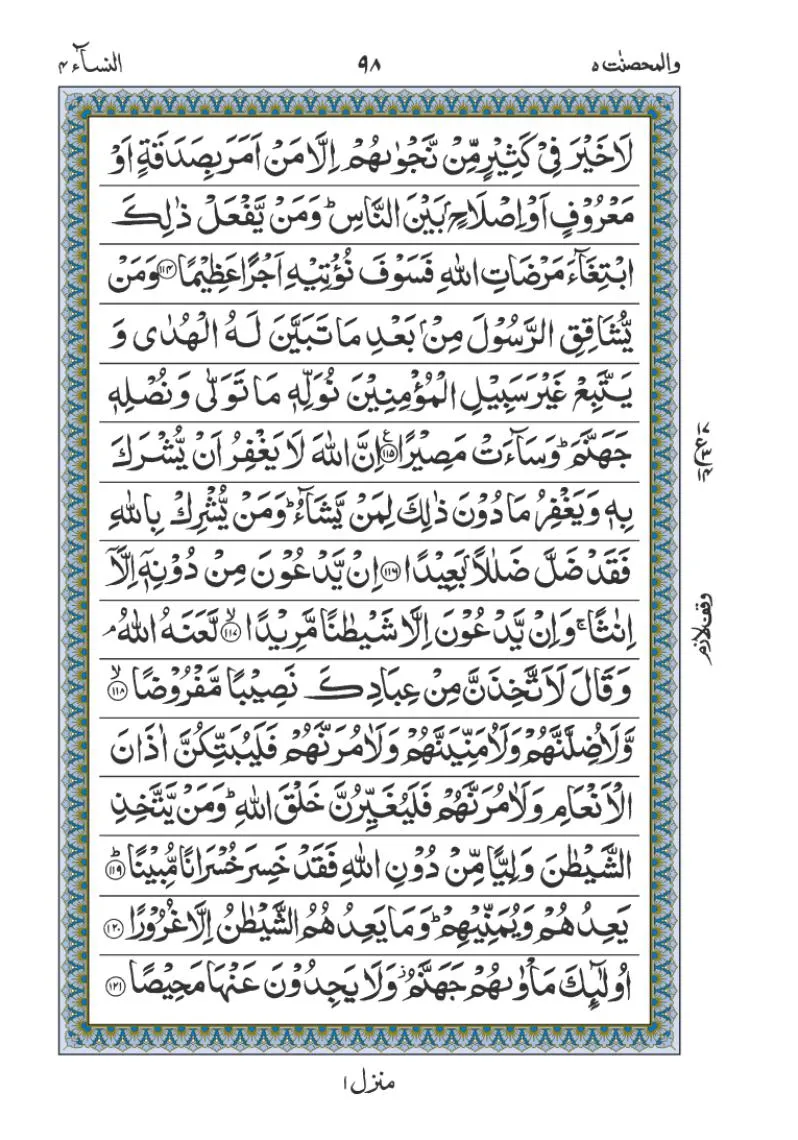 والمحصنت ٥ ٩٨ النسآء ٤
لَا خَيْرَ فِيْ كَثِيْرٍ مِّنْ نَّجْوٰىهُمْ اِلَّا مَنْ اَمَرَ بِصَدَقَةٍ اَوْ
مَعْرُوْفٍ اَوْ اِصْلَاحٍۭ بَيْنَ النَّاسِ ؕ وَمَنْ يَّفْعَلْ ذٰلِكَ
ابْتِغَآءَ مَرْضَاتِ اللّٰهِ فَسَوْفَ نُؤْتِيْهِ اَجْرًا عَظِيْمًا ﴿۱۱۴﴾ وَمَنْ
يُّشَاقِقِ الرَّسُوْلَ مِنْۢ بَعْدِ مَا تَبَيَّنَ لَهُ الْهُدٰى وَ
يَتَّبِعْ غَيْرَ سَبِيْلِ الْمُؤْمِنِيْنَ نُوَلِّهٖ مَا تَوَلّٰى وَنُصْلِهٖ
جَهَنَّمَ ؕ وَسَآءَتْ مَصِيْرًا ﴿۱۱۵﴾ اِنَّ اللّٰهَ لَا يَغْفِرُ اَنْ يُّشْرَكَ
بِهٖ وَيَغْفِرُ مَا دُوْنَ ذٰلِكَ لِمَنْ يَّشَآءُ ؕ وَمَنْ يُّشْرِكْ بِاللّٰهِ
فَقَدْ ضَلَّ ضَلٰلًاۢ بَعِيْدًا ﴿۱۱۶﴾ اِنْ يَّدْعُوْنَ مِنْ دُوْنِهٖۤ اِلَّاۤ
اِنٰثًا ۚ وَاِنْ يَّدْعُوْنَ اِلَّا شَيْطٰنًا مَّرِيْدًا ﴿۱۱۷﴾ۙ لَّعَنَهُ اللّٰهُ ۘ
وَقَالَ لَاَتَّخِذَنَّ مِنْ عِبَادِكَ نَصِيْبًا مَّفْرُوْضًا ﴿۱۱۸﴾ۙ
وَّلَاُضِلَّنَّهُمْ وَلَاُمَنِّيَنَّهُمْ وَلَاٰمُرَنَّهُمْ فَلَيُبَتِّكُنَّ اٰذَانَ
الْاَنْعَامِ وَلَاٰمُرَنَّهُمْ فَلَيُغَيِّرُنَّ خَلْقَ اللّٰهِ ؕ وَمَنْ يَّتَّخِذِ
الشَّيْطٰنَ وَلِيًّا مِّنْ دُوْنِ اللّٰهِ فَقَدْ خَسِرَ خُسْرَانًا مُّبِيْنًا ﴿۱۱۹﴾ؕ
يَعِدُهُمْ وَيُمَنِّيْهِمْ ؕ وَمَا يَعِدُهُمُ الشَّيْطٰنُ اِلَّا غُرُوْرًا ﴿۱۲۰﴾
اُولٰٓئِكَ مَاْوٰىهُمْ جَهَنَّمُ ؗ وَلَا يَجِدُوْنَ عَنْهَا مَحِيْصًا ﴿۱۲۱﴾
وقف لازم
منزل ١